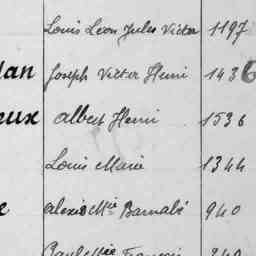 Louis Léon Jules Victor 1197
Joseph Victor Henri 1436
eux Albert Henri 1536
Louis Marie 1344
e Alexis Mie Barnabé 940
Paul Mie François 240